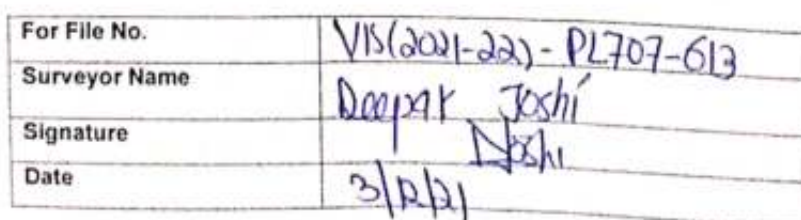 For File No. VIS(2021-22)-PL707-613
Surveyor Name Deepak Joshi
Signature DJoshi
Date 3/12/21